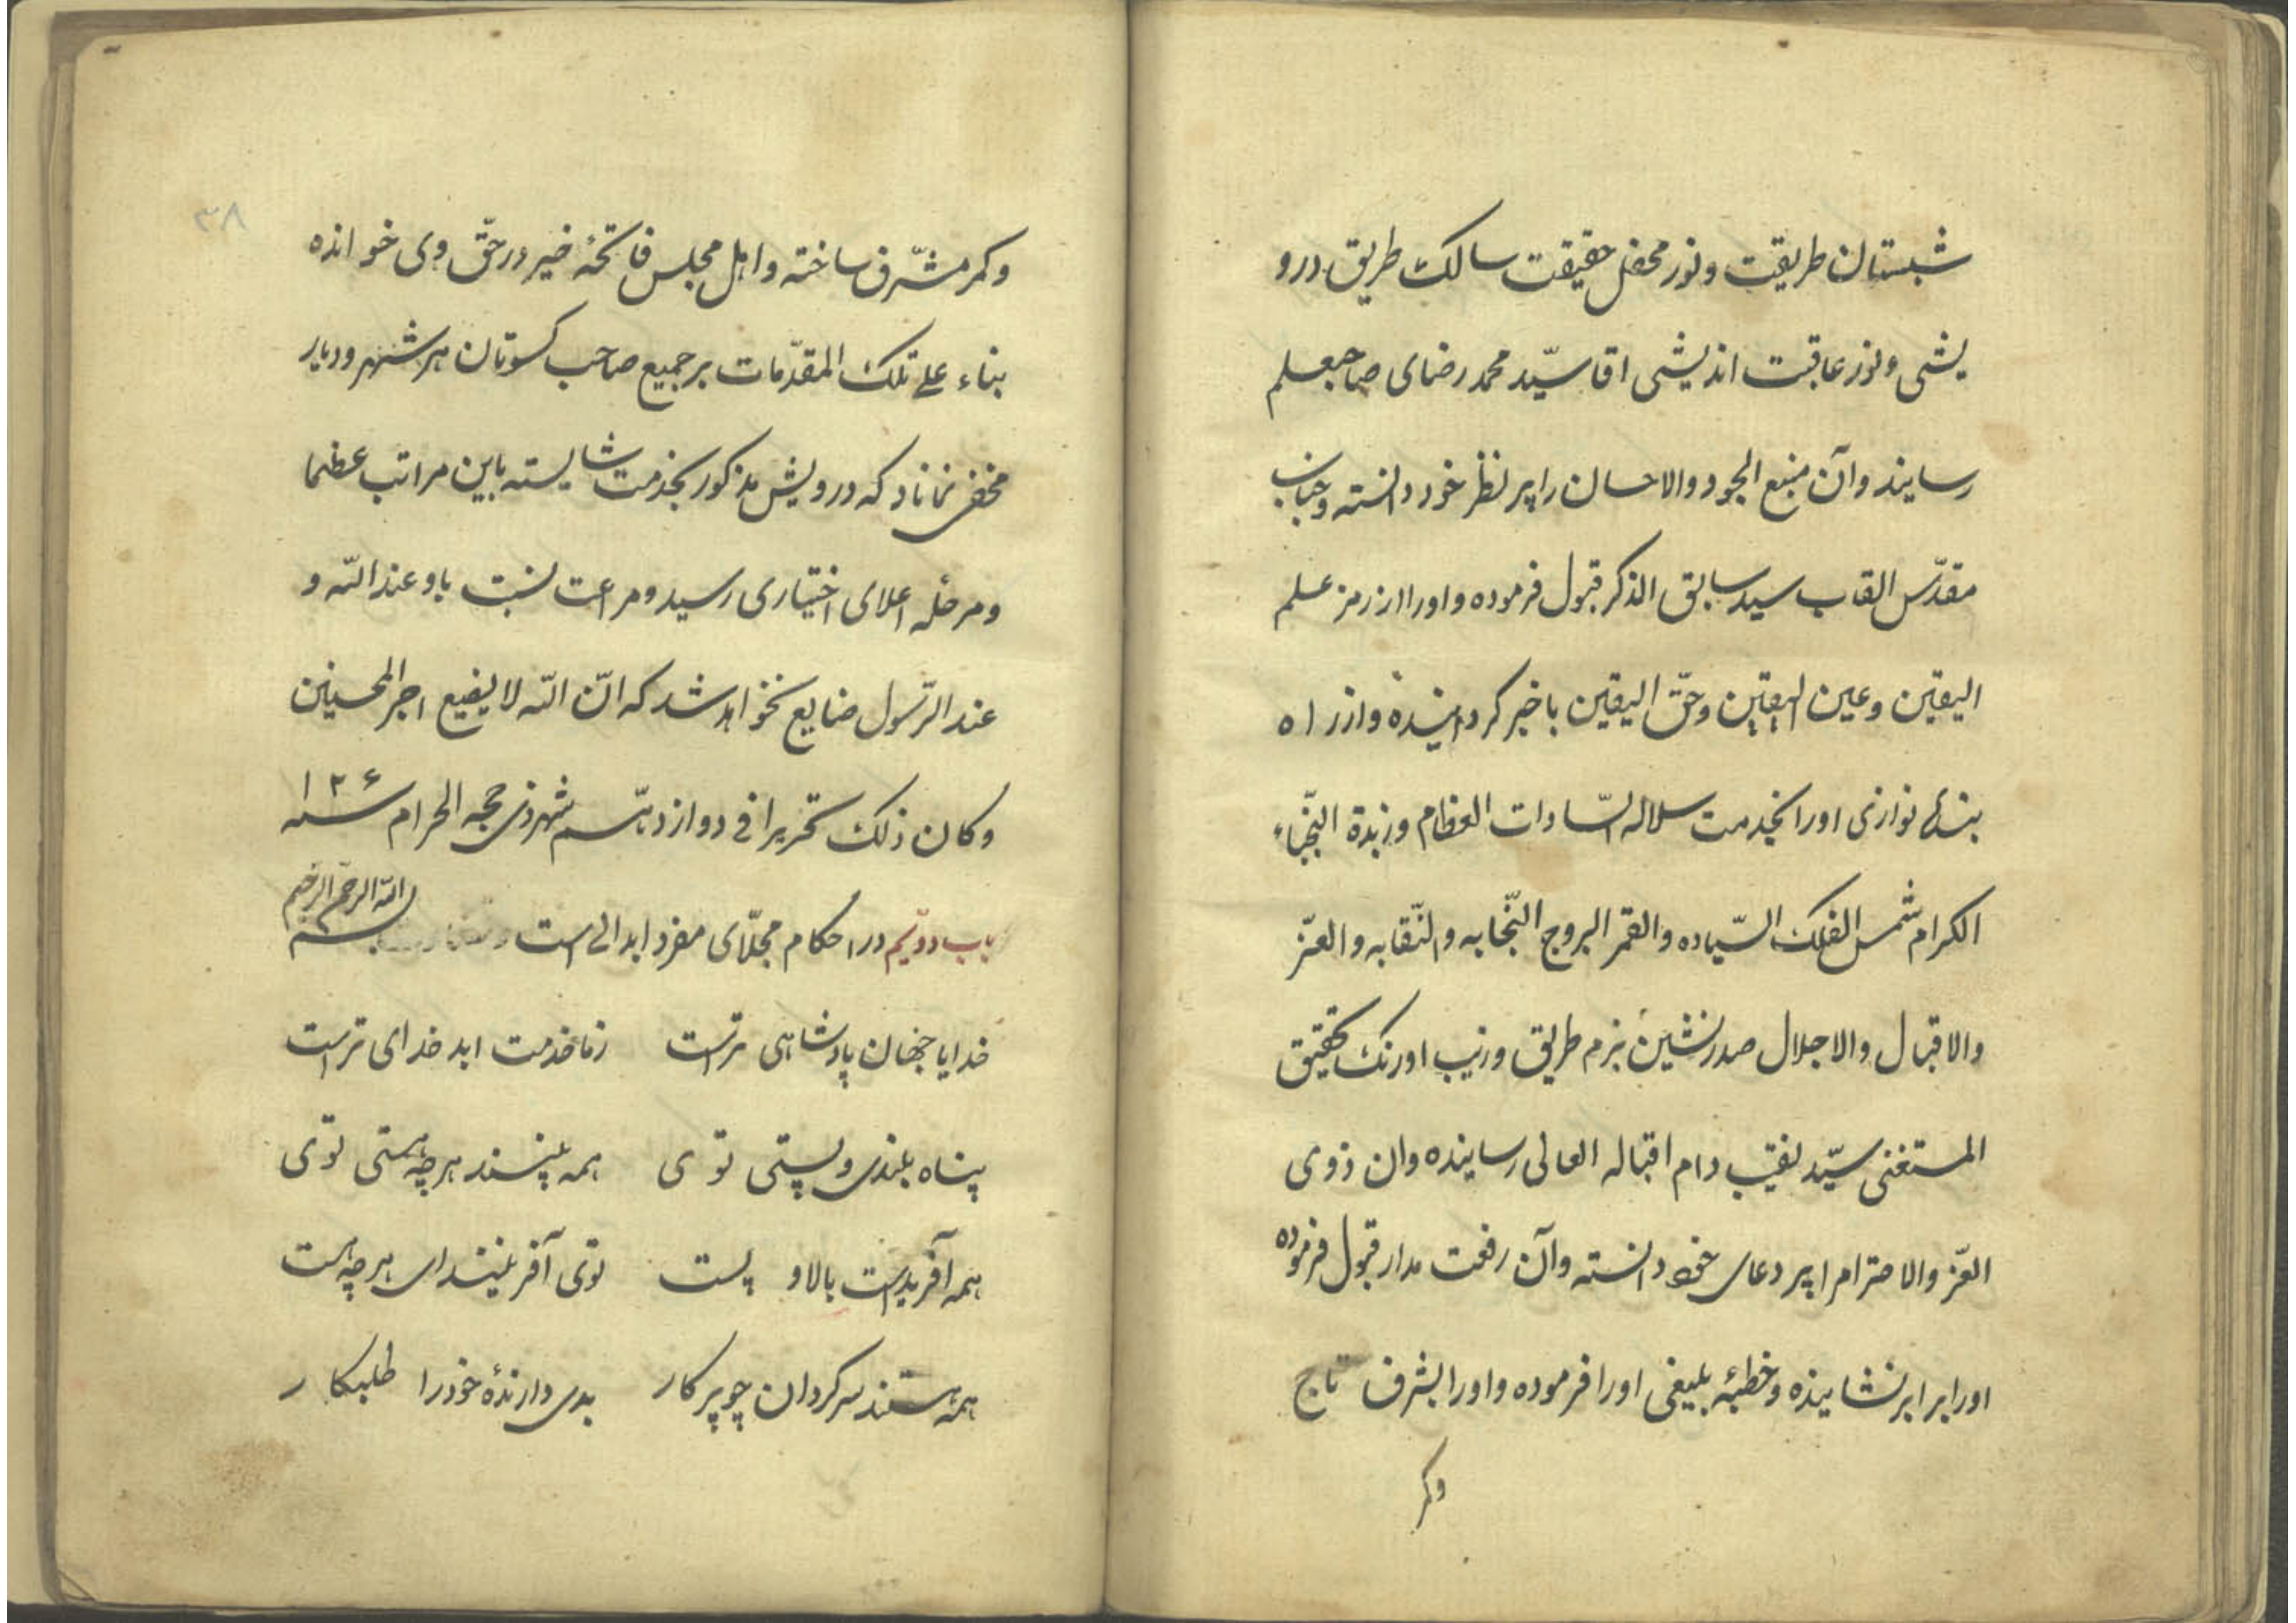 شبستان طریقت و نور محفل حقیقت سالک طریق درو
یشی و نور عاقبت اندیشی اقا سیّد محمد رضای صاحبعلم
رسانید و آن منبع الجود والاحسان را پیر نظر خود دانسته و جناب
مقدّس القاب سید سابق الذکر قبول فرموده و اورا از رمز علم
الیقین و عین الیقین و حقّ الیقین با خبر کردانیده و از راه
بندۀ نوازی اورا بخدمت سلاله السّادات العظام و زبدة النّجباء
الکرام شمس الفلک السّیاده والقمر البروج النّجابه والنّقابه والعزّ
والاقبال والاجلال صدر نشین بزم طریق و زیب اورنک تحقیق
المستغنی سیّد نقیب دام اقباله العالی رسانیده وان ذوی
العزّ والاحترام را پیر دعای خود دانسته وآن رفعت مدار قبول فرموده
اورا برابر نشانیده و خطبۀ بلیغی اورا فرموده و اورا بشرف تاج
وکمر
۳۸
وکمر مشرّف ساخته و اهل مجلس فاتحۀ خیر در حقّ وی خوانده
بناء علی تلک المقدّمات بر جمیع صاحب کسوتان هر شهر و دیار
مخفی نماناد که درویش مذکور بخدمت شایسته باین مراتب عظما
و مرحلۀ اعلای اختیاری رسید و مراعت نسبت باو عند اللّه و
عند الرّسول ضایع نخواهد شد که انّ اللّه لا یضیع اجر المحسنین
وکان ذلک تحریرا فی دوازدهم شهر ذی حجه الحرام سنه ۱۲۶
باب دویّم در احکام مجلّای مفرد ابدالی است بسم اللّه الرّحمن الرّحیم
خدایا جهان پادشاهی تراست زما خدمت اید خدای تراست
پناه بلندی و پستی توی همه نیستند هر چه هستی توی
همه آفریدست بالا و پست توی آفرینندای هر چه هست
همه هستند سرکردان چو پرکار بدی دارندۀ خود را طلبکار